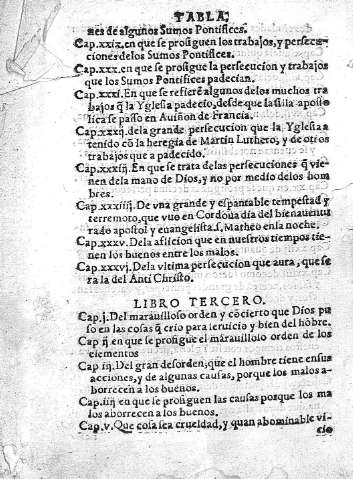 TABLA,
nes de algunos Sumos Pontifices.
Cap.xxix. en que se prosiguen los trabajos, y persecu-
ciones de los Sumos Pontifices.
Cap.xxx. en que se prosigue la persecucion y trabajos
que los Sumos Pontifices padecian.
Cap.xxxj. En que se refierē algunos delos muchos tra
bajos q̃ la Yglesia padecio, desde que la silla aposto
lica se passo en Auiñon de Francia.
Cap.xxxij. dela grande persecucion que la Yglesia a
tenido cō la heregia de Martin Luthero, y de otros
trabajos que a padecido.
Cap.xxxiij. En que se trata delas persecuciones q̃ vie-
nen dela mano de Dios, y no por medio delos hom
bres.
Cap.xxxiiij. De vna grande y espantable tempestad y
terremoto, que vuo en Cordoua dia del bienauentu
rado apostol y euangelista.s. Matheo en la noche.
Cap.xxxv. Dela aflicion que en nuestros tiempos tie-
nen los buenos entre los malos.
Cap.xxxvj. Dela vltima persecucion que aura, que se
ra la del Anti Christo.
LIBRO TERCERO.
Cap.j. Del marauilloso orden y cōcierto que Dios pu
so en las cosas q̃ crio para seruicio y bien del hōbre.
Cap ij en que se prosigue el marauilloso orden de los
elementos
Cap iij. Del gran desorden, que el hombre tiene en sus
acciones, y de algunas causas, porque los malos a-
borrecen a los buenos.
Cap iiij en que se prosiguen las causas porque los ma
los aborrecen a los buenos.
Cap.v. Que cosa sea crueldad, y quan abominable vi-
cio